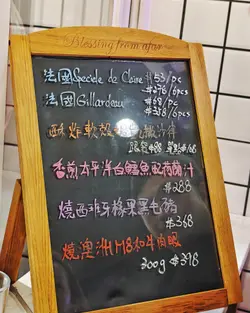 Blessing from afar
法國Speciele de Claire $53/pc
$276/6pcs
法國Gillardeau $68/pc
$358/6pcs
酥炸軟殼
$88
香煎太平洋白鱈魚配荷蘭汁
$288
燒西班牙橡果黑毛豬
$368
燒澳洲M8和牛肉眼
300g $398